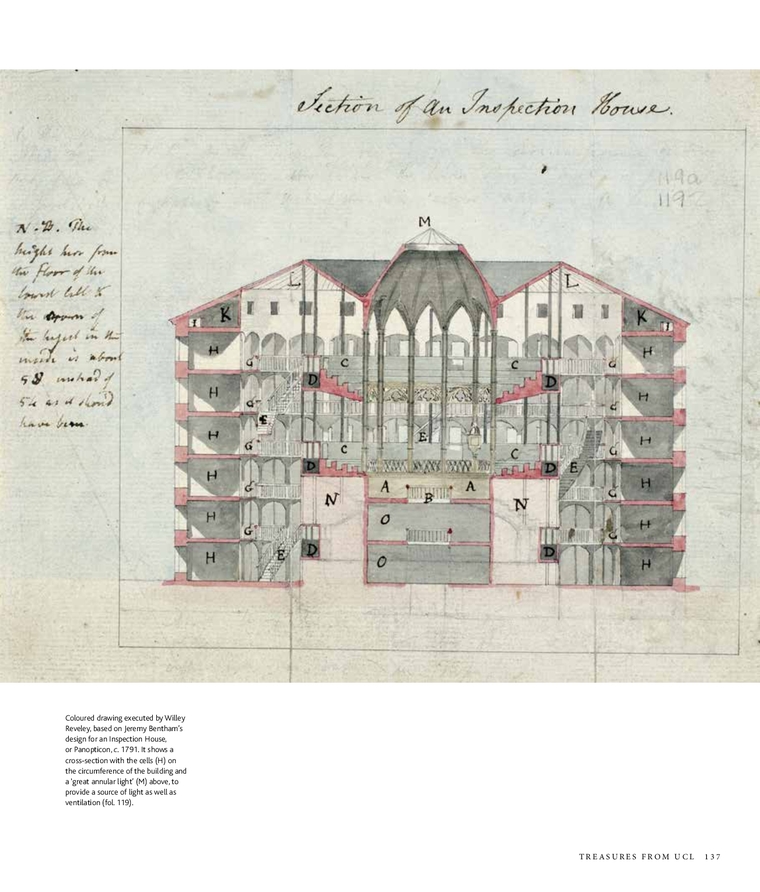 Section of an Inspection House.
119a
119
N.B. The
height here from
the floor of the
lowest Cell to
the crown of
the highest in the
inside is about
58 instead of
54 as it should
have been
M
L
L
K
K
H
H
G
C
C
G
D
D
H
H
G
G
E
E
H
H
G
C
C
G
D
D
E
H
H
G
A
A
G
B
N
N
O
H
H
G
G
D
D
E
O
H
H
Coloured drawing executed by Willey
Reveley, based on Jeremy Bentham's
design for an Inspection House,
or Panopticon, c. 1791. It shows a
cross-section with the cells (H) on
the circumference of the building and
a 'great annular light' (M) above, to
provide a source of light as well as
ventilation (fol. 119).
TREASURES FROM UCL 137